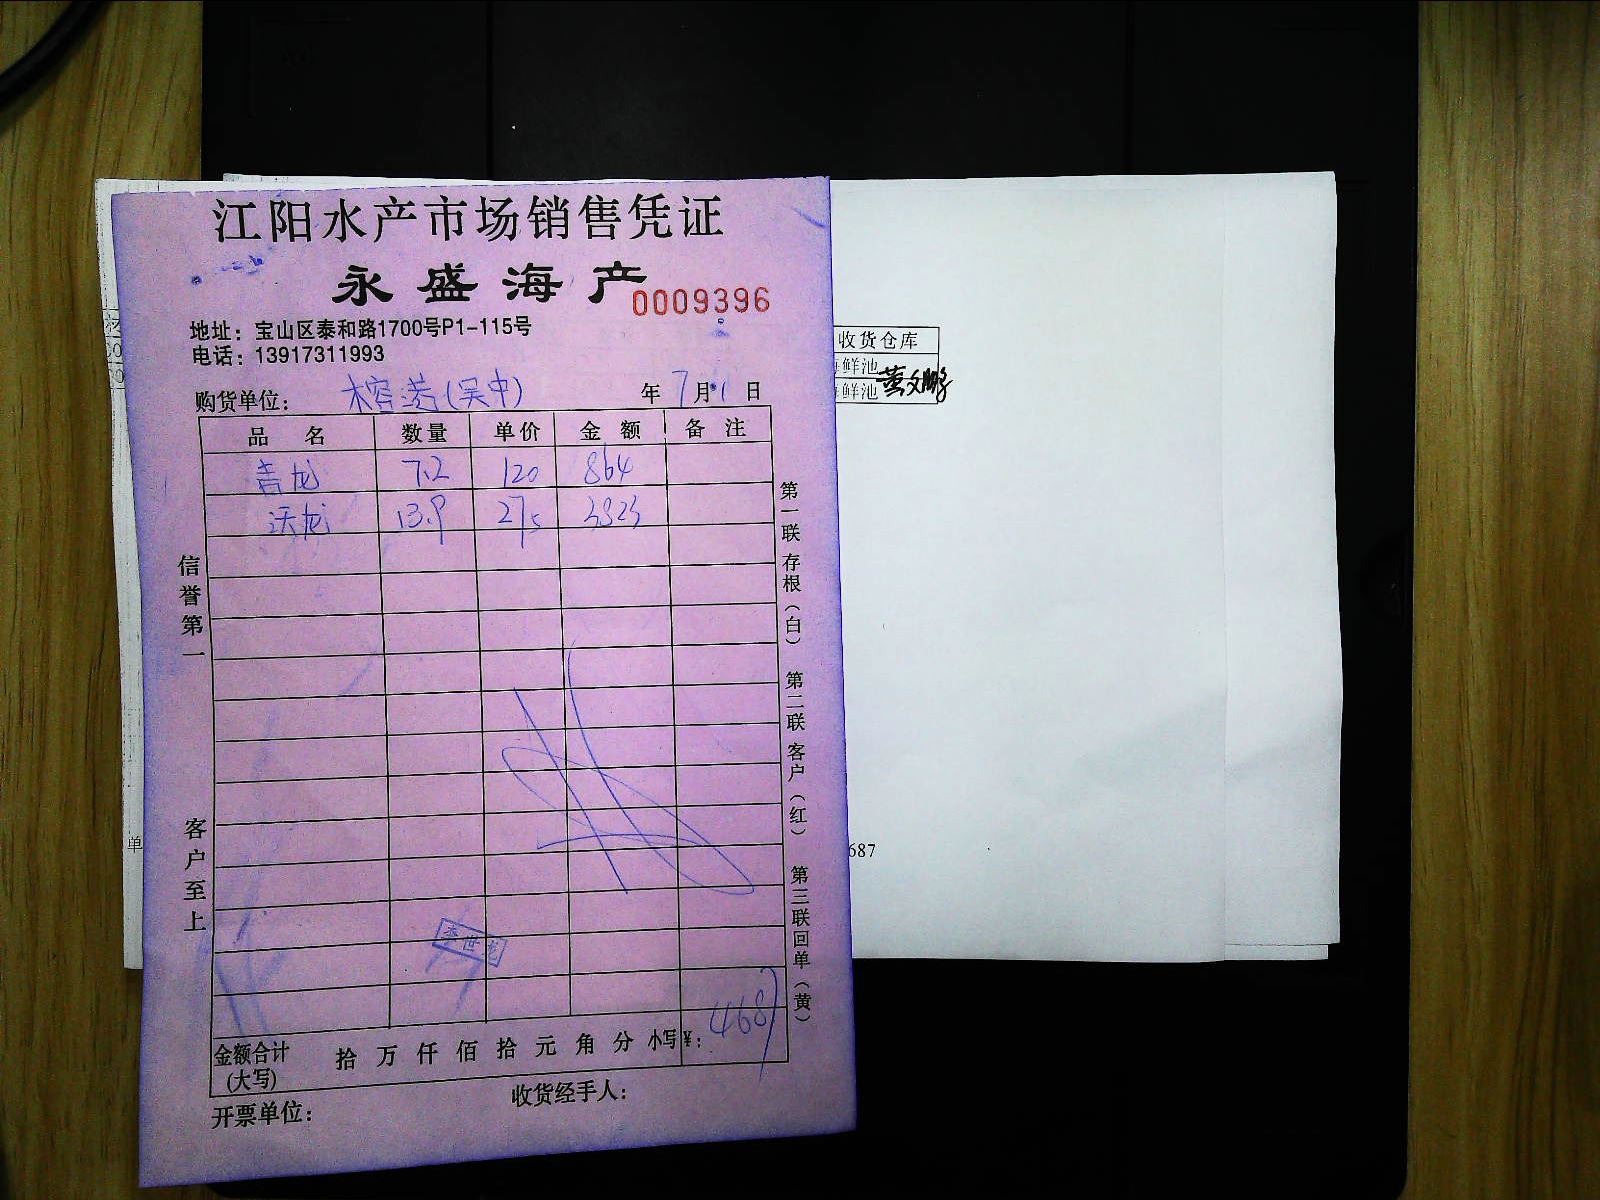 江阳水产市场销售凭证
永盛海产
0009396
地址：宝山区泰和路1700号P1-115号
电话：13917311993
购货单位： 榕港(吴中) 年 7月1日
品名 数量 单价 金额 备注
青龙 7.2 120 864
沃龙 13.9 275 3823
信誉第一
客户至上
第一联存根（白） 第二联客户（红） 第三联回单（黄）
李世龙
金额合计(大写) 拾 万 仟 佰 拾 元 角 分 小写￥: 4687
开票单位： 收货经手人：
收货仓库
鲜池
鲜池
董文鹏
687
单